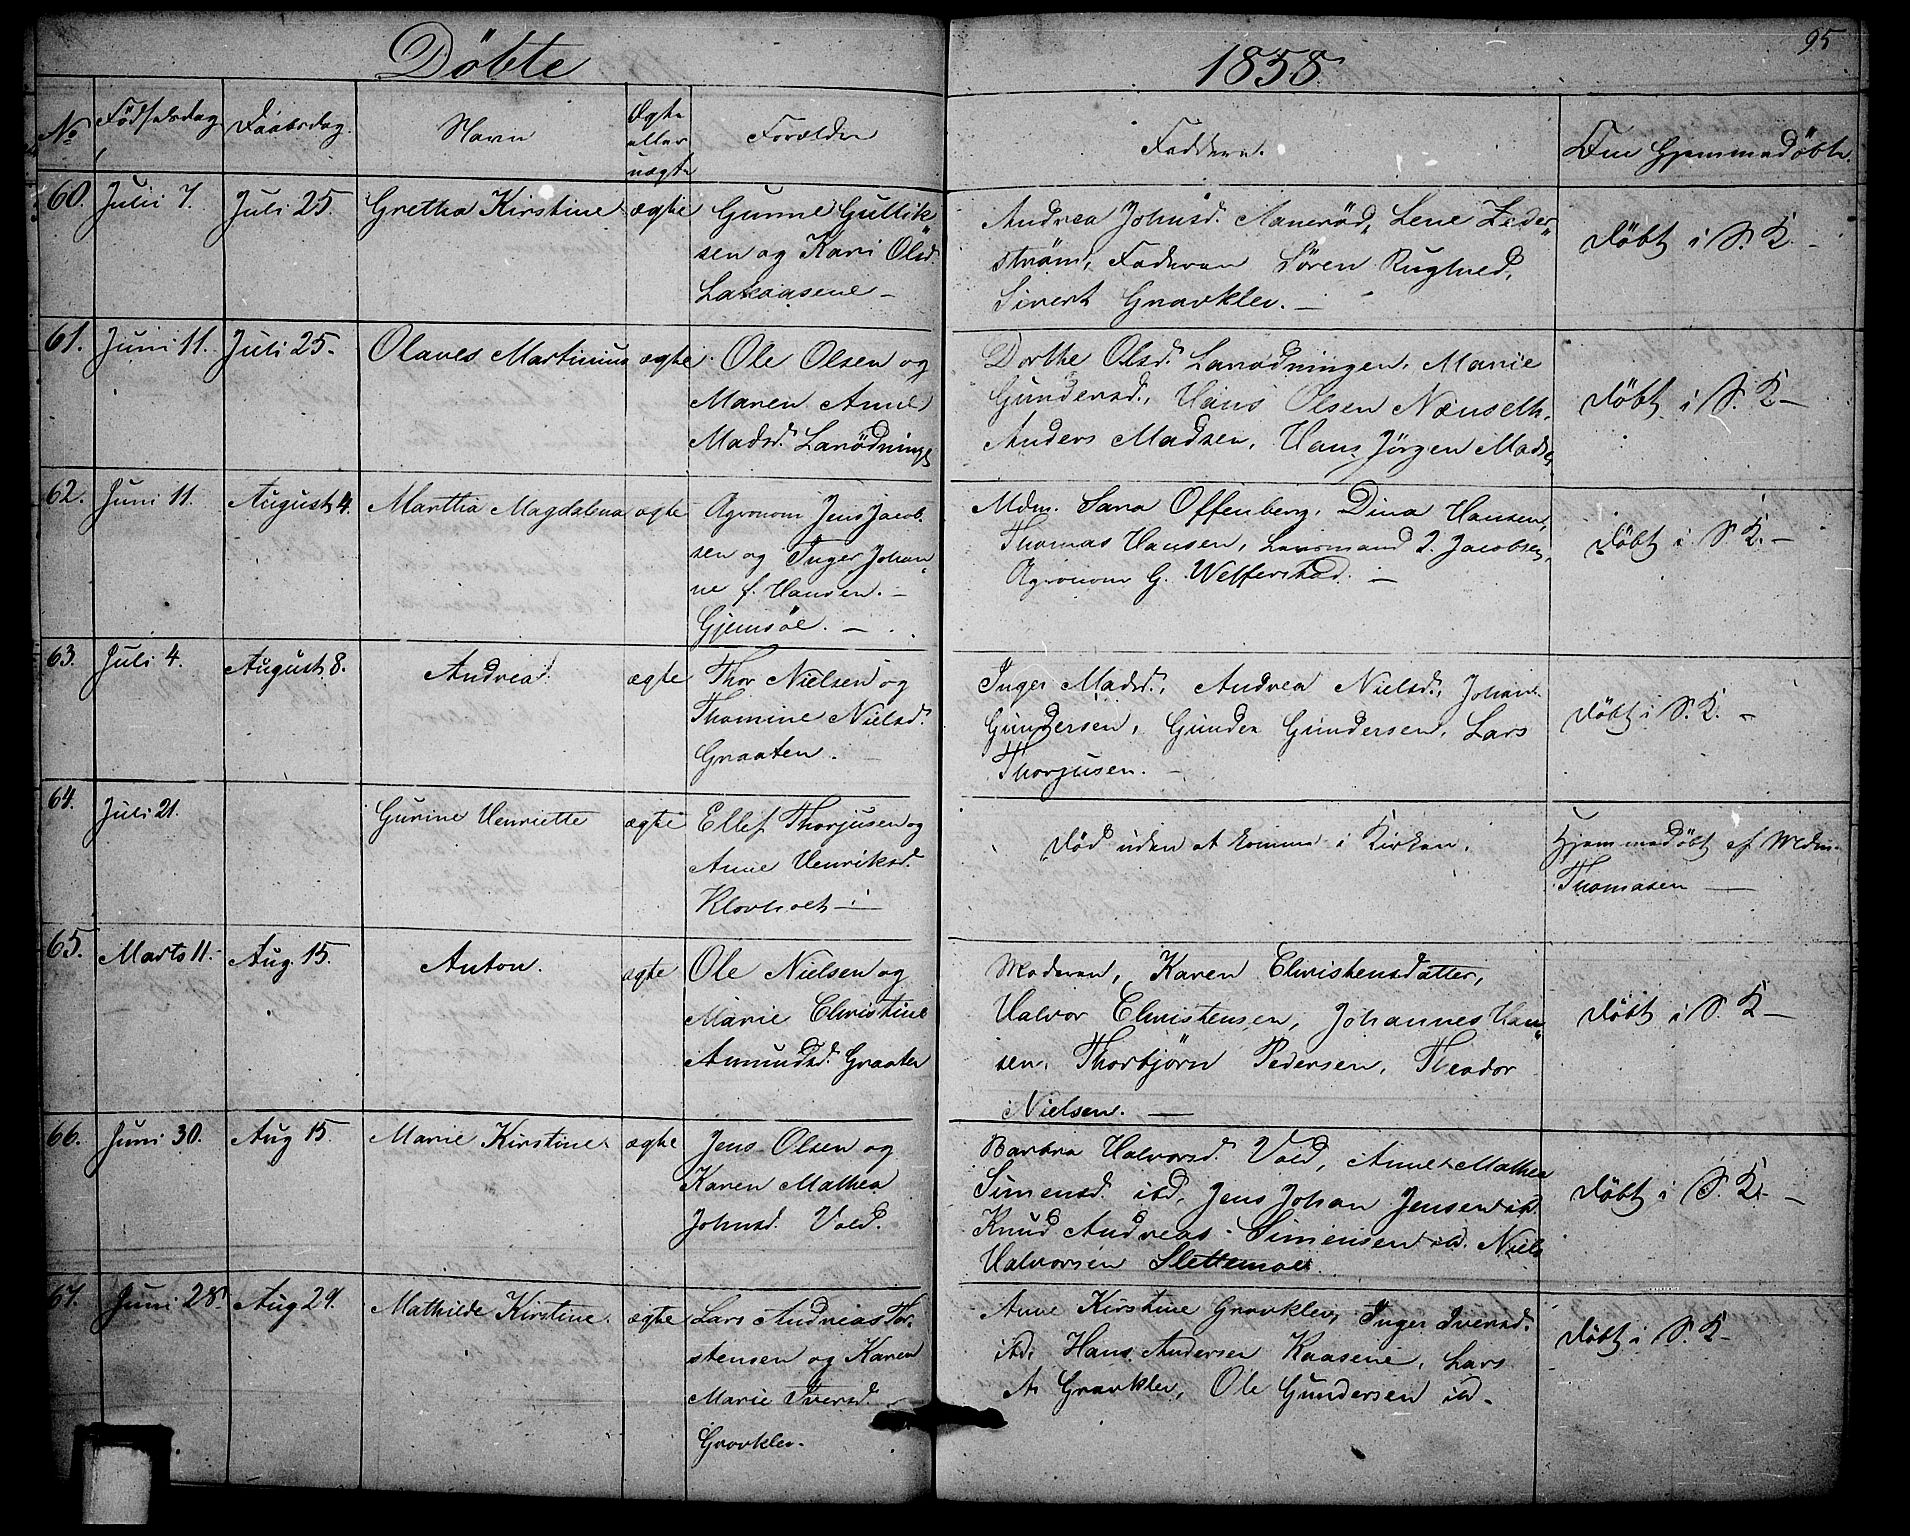 Döbte
1858
95
No
Födselsdag
Daabsdag
Navn
Ægte eller uægte
Forældre
Faddere.
Om Hjemmedöbte.
60. Julii 7. Juli 25. Gretha Kirstine ægte
Gunne Gullik„
sen og Kari Olsd.
Lakaasene –
Andrea Johnsd. Aanerød, Lene Zeder„
ström, Faderen Sören Rugtved,
Sivert Gravklev. –
Döbt i S. K. –
61. Juni 11. Juli 25. Olaves Martinius ægte
Ole Olsen og
Maren Anne
Madsd. Larödning
Dorthe Olsd. Larödningen, Marie
Gundersd., Hans Olsen Nænseth,
Anders Madsen, Hans Jörgen Mads
Döbt i S. K –
62. Juni 11. August 4. Martha Magdalena ægte
Agronom Jens Jacob-
sen og Inger Johan„
ne f. Hansen. –
Gjemsöe. –
Mdm. Sara Offenberg, Dina Hansen,
Thomas Hansen, Lensmand J. Jacobsen,
Agronom G. Welferstad. –
Döbt i S K. –
63. Juli 4. August 8. Andrea. ægte
Thor Nielsen og
Thomine Nielsd.
Graaten.
Inger Madsd., Andrea Nielsd., Johan
Gundersen, Gunder Gundersen, Lars
Thorjusen. –
Döbt i S. K. –
64. Juli 21. Gurine Henriette ægte
Ellef Thorjusen og
Anne Henriksd.
Klovholt –
Död uden at komme i Kirken.
Hjemmedöbt af Mdm.
Thomasen –
65. Marts 11. Aug. 15. Anton. ægte
Ole Nielsen og
Marie Christine
Amundsd. Graaten
Moderen, Karen Christensdatter,
Halvor Christensen, Johannes Han„
sen, Thorbjörn Pedersen, Theodor
Nielsen. –
Döbt i S. K –
66. Juni 30. Aug 15. Marie Kirstine. ægte
Jens Olsen og
Karen Mathea
Johnsd. Vold.
Barbra Halvorsd. Vold, Anne Mathea
Simensd. ibd, Jens Johan Jensen ibd.
Knud Andreas Simensen ibd. Niels
Halvorsen Slettemoe.
Döbt i S. K. –
67. Juni 28. Aug 29. Mathilde Kirstine. ægte
Lars Andreas Tor-
stensen og Karen
Marie Iversd.
Gravklev.
Anne Kirstine Gravklev, Inger Iversd.
ibd. Hans Andersen Kaasene, Lars
A. Gravklev, Ole Gundersen ibd.
Döbt i S. K –